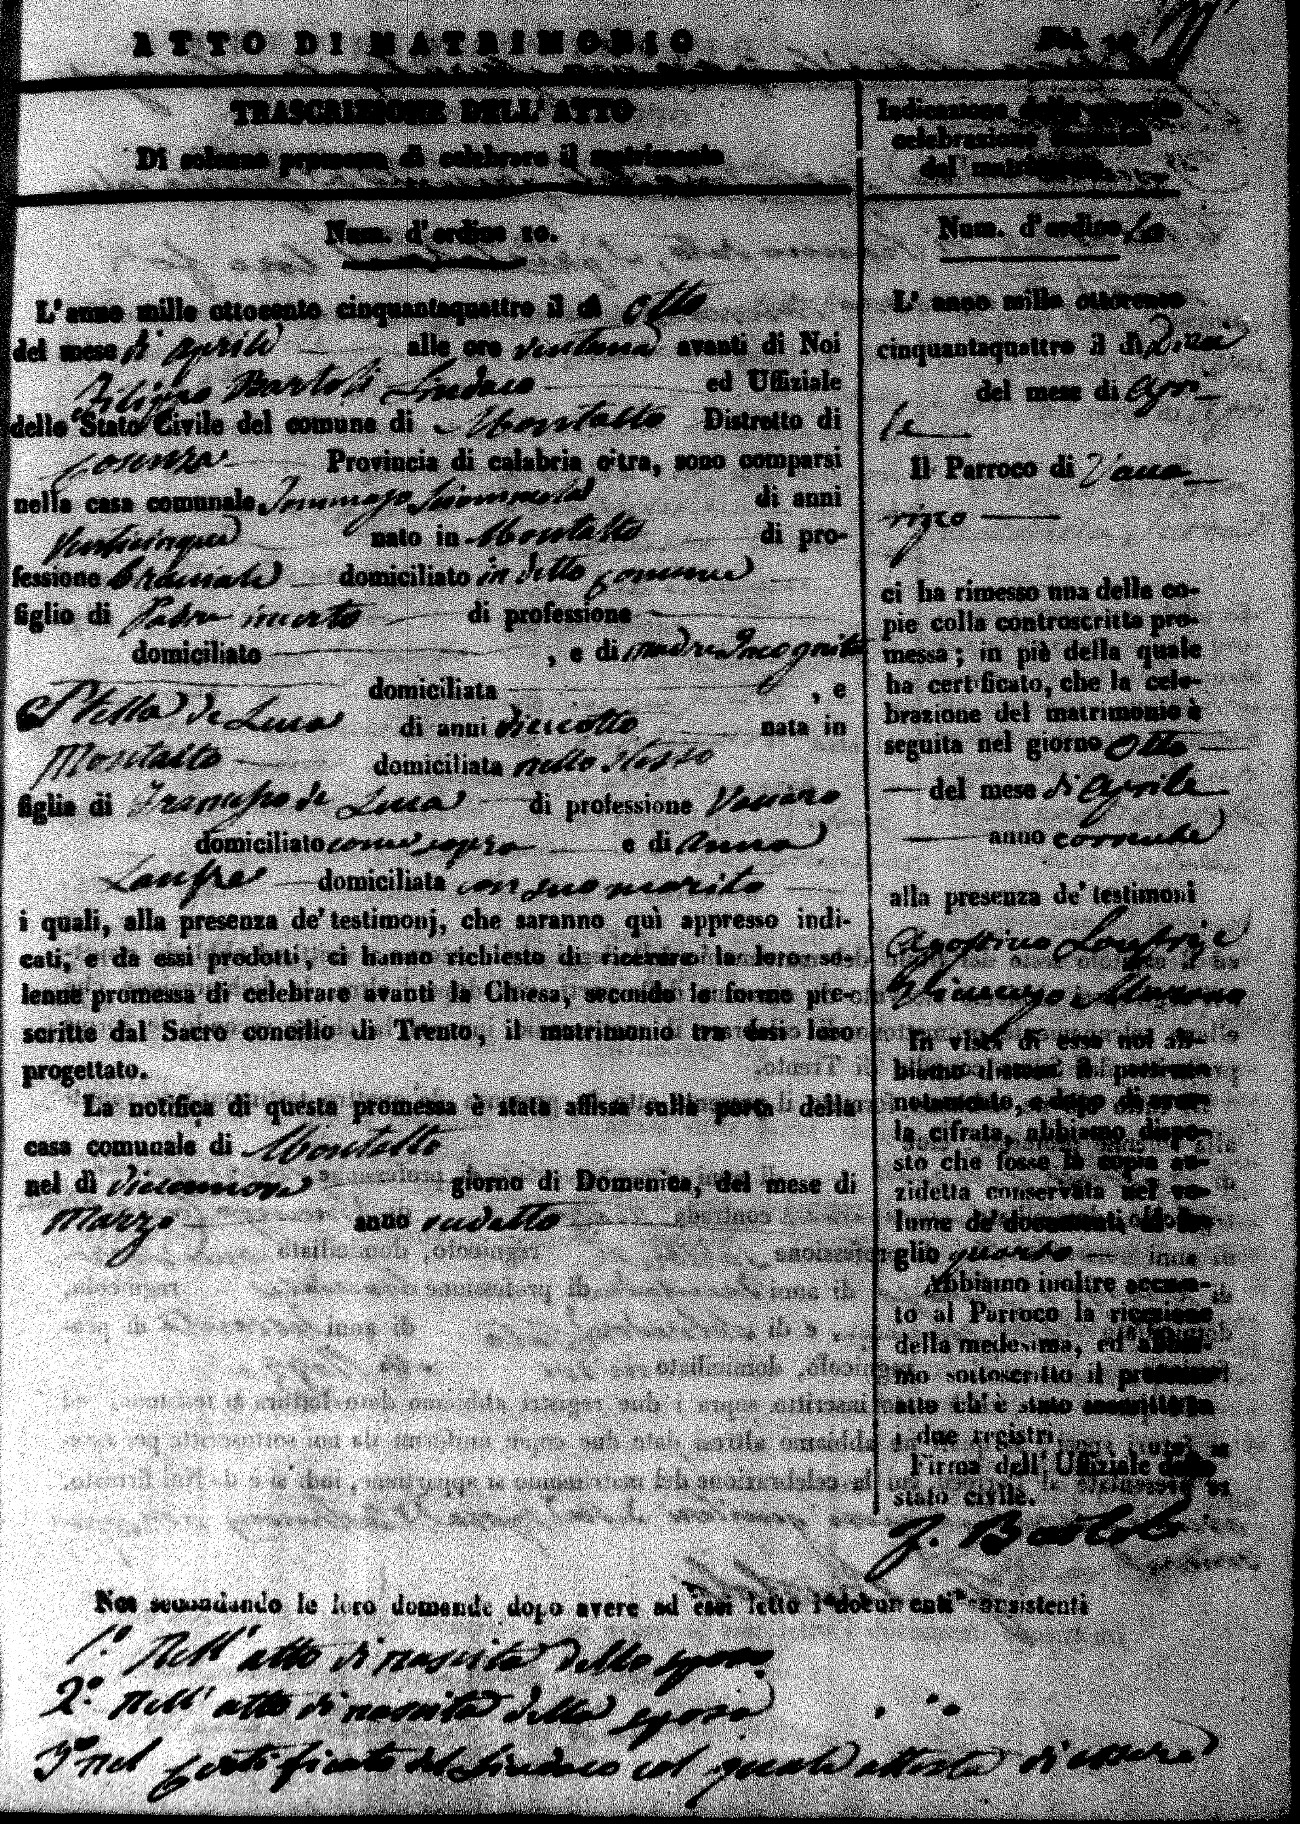 ATTO DI MATRIMONIO
TRASCRIZIONE DELL' ATTO
Di solenne promessa di celebrare il matrimonio
Num. d'ordine 10.
L'anno mille ottocento cinquantaquattro il dì otto
del mese di Aprile alle ore ventuna avanti di Noi
Filippo Bartoli Sindaco ed Uffiziale
dello Stato Civile del comune di Montalto Distretto di
Cosenza Provincia di calabria citra, sono comparsi
nella casa comunale Tommaso di anni
Venticinque nato in Montalto di pro-
fessione bracciale domiciliato in detto comune
figlio di Padre incerto di professione
domiciliato , e di madre Incognita
domiciliata , e
Stella de Luca di anni dieciotto nata in
Montalto domiciliata nello stesso
figlia di Francesco de Luca di professione Vaccaro
domiciliato come sopra e di Anna
Lanfre domiciliata con suo marito
i quali, alla presenza de' testimonj, che saranno quì appresso indi-
cati, e da essi prodotti, ci hanno richiesto di ricevere la loro so-
lenne promessa di celebrare avanti la Chiesa, secondo le forme pre-
scritte dal Sacro concilio di Trento, il matrimonio tra essi loro
progettato.
La notifica di questa promessa è stata affissa sulla porta della
casa comunale di Montalto
nel dì diecinnove giorno di Domenica, del mese di
Marzo anno sudetto
Indicazione della
celebrazione
del matrimonio
Num. d'ordine 10
L' anno mille ottocento
cinquantaquattro il dì dieci
del mese di Apri-
le
Il Parroco di Vacca-
rizzo
ci ha rimesso una delle co-
pie colla controscritta pro-
messa; in piè della quale
ha certificato, che la cele-
brazione del matrimonio è
seguita nel giorno Otto
del mese di Aprile
anno corrente
alla presenza de' testimoni
Agostino Lanfri e
Vincenzo
In vista di essa noi ab-
biamo il presente
notamento, e dopo di aver-
la cifrata, abbiamo dispo-
sto che fosse la copia an-
zidetta conservata nel vo-
lume de' documenti al fo-
glio quarto
Abbiamo inoltre accusa-
to al Parroco la ricezione
della medesima, ed abbia-
mo sottoscritto il presente
atto ch' è stato inscritto su
i due registri.
Firma dell' Uffiziale dello
stato civile.
F. Bartoli
Noi secondando le loro domande dopo avere ad essi letto i documenti consistenti
1.° Nell' atto di nascita dello sposo
2.° Nell' atto di nascita della sposa
3.° nel Certificato del Sindaco col quale attesta di essere